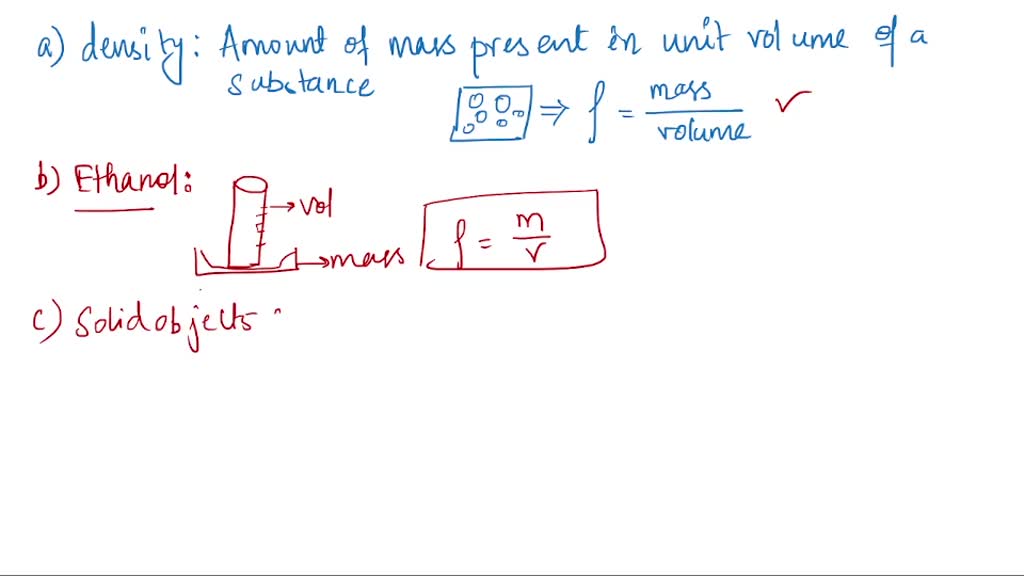 a) density: Amount of mass present in unit volume of a
substance
⇒ ρ = mass / volume ✓
b) Ethanol:
→ vol
→ mass
ρ = m / v
c) Solid objects :